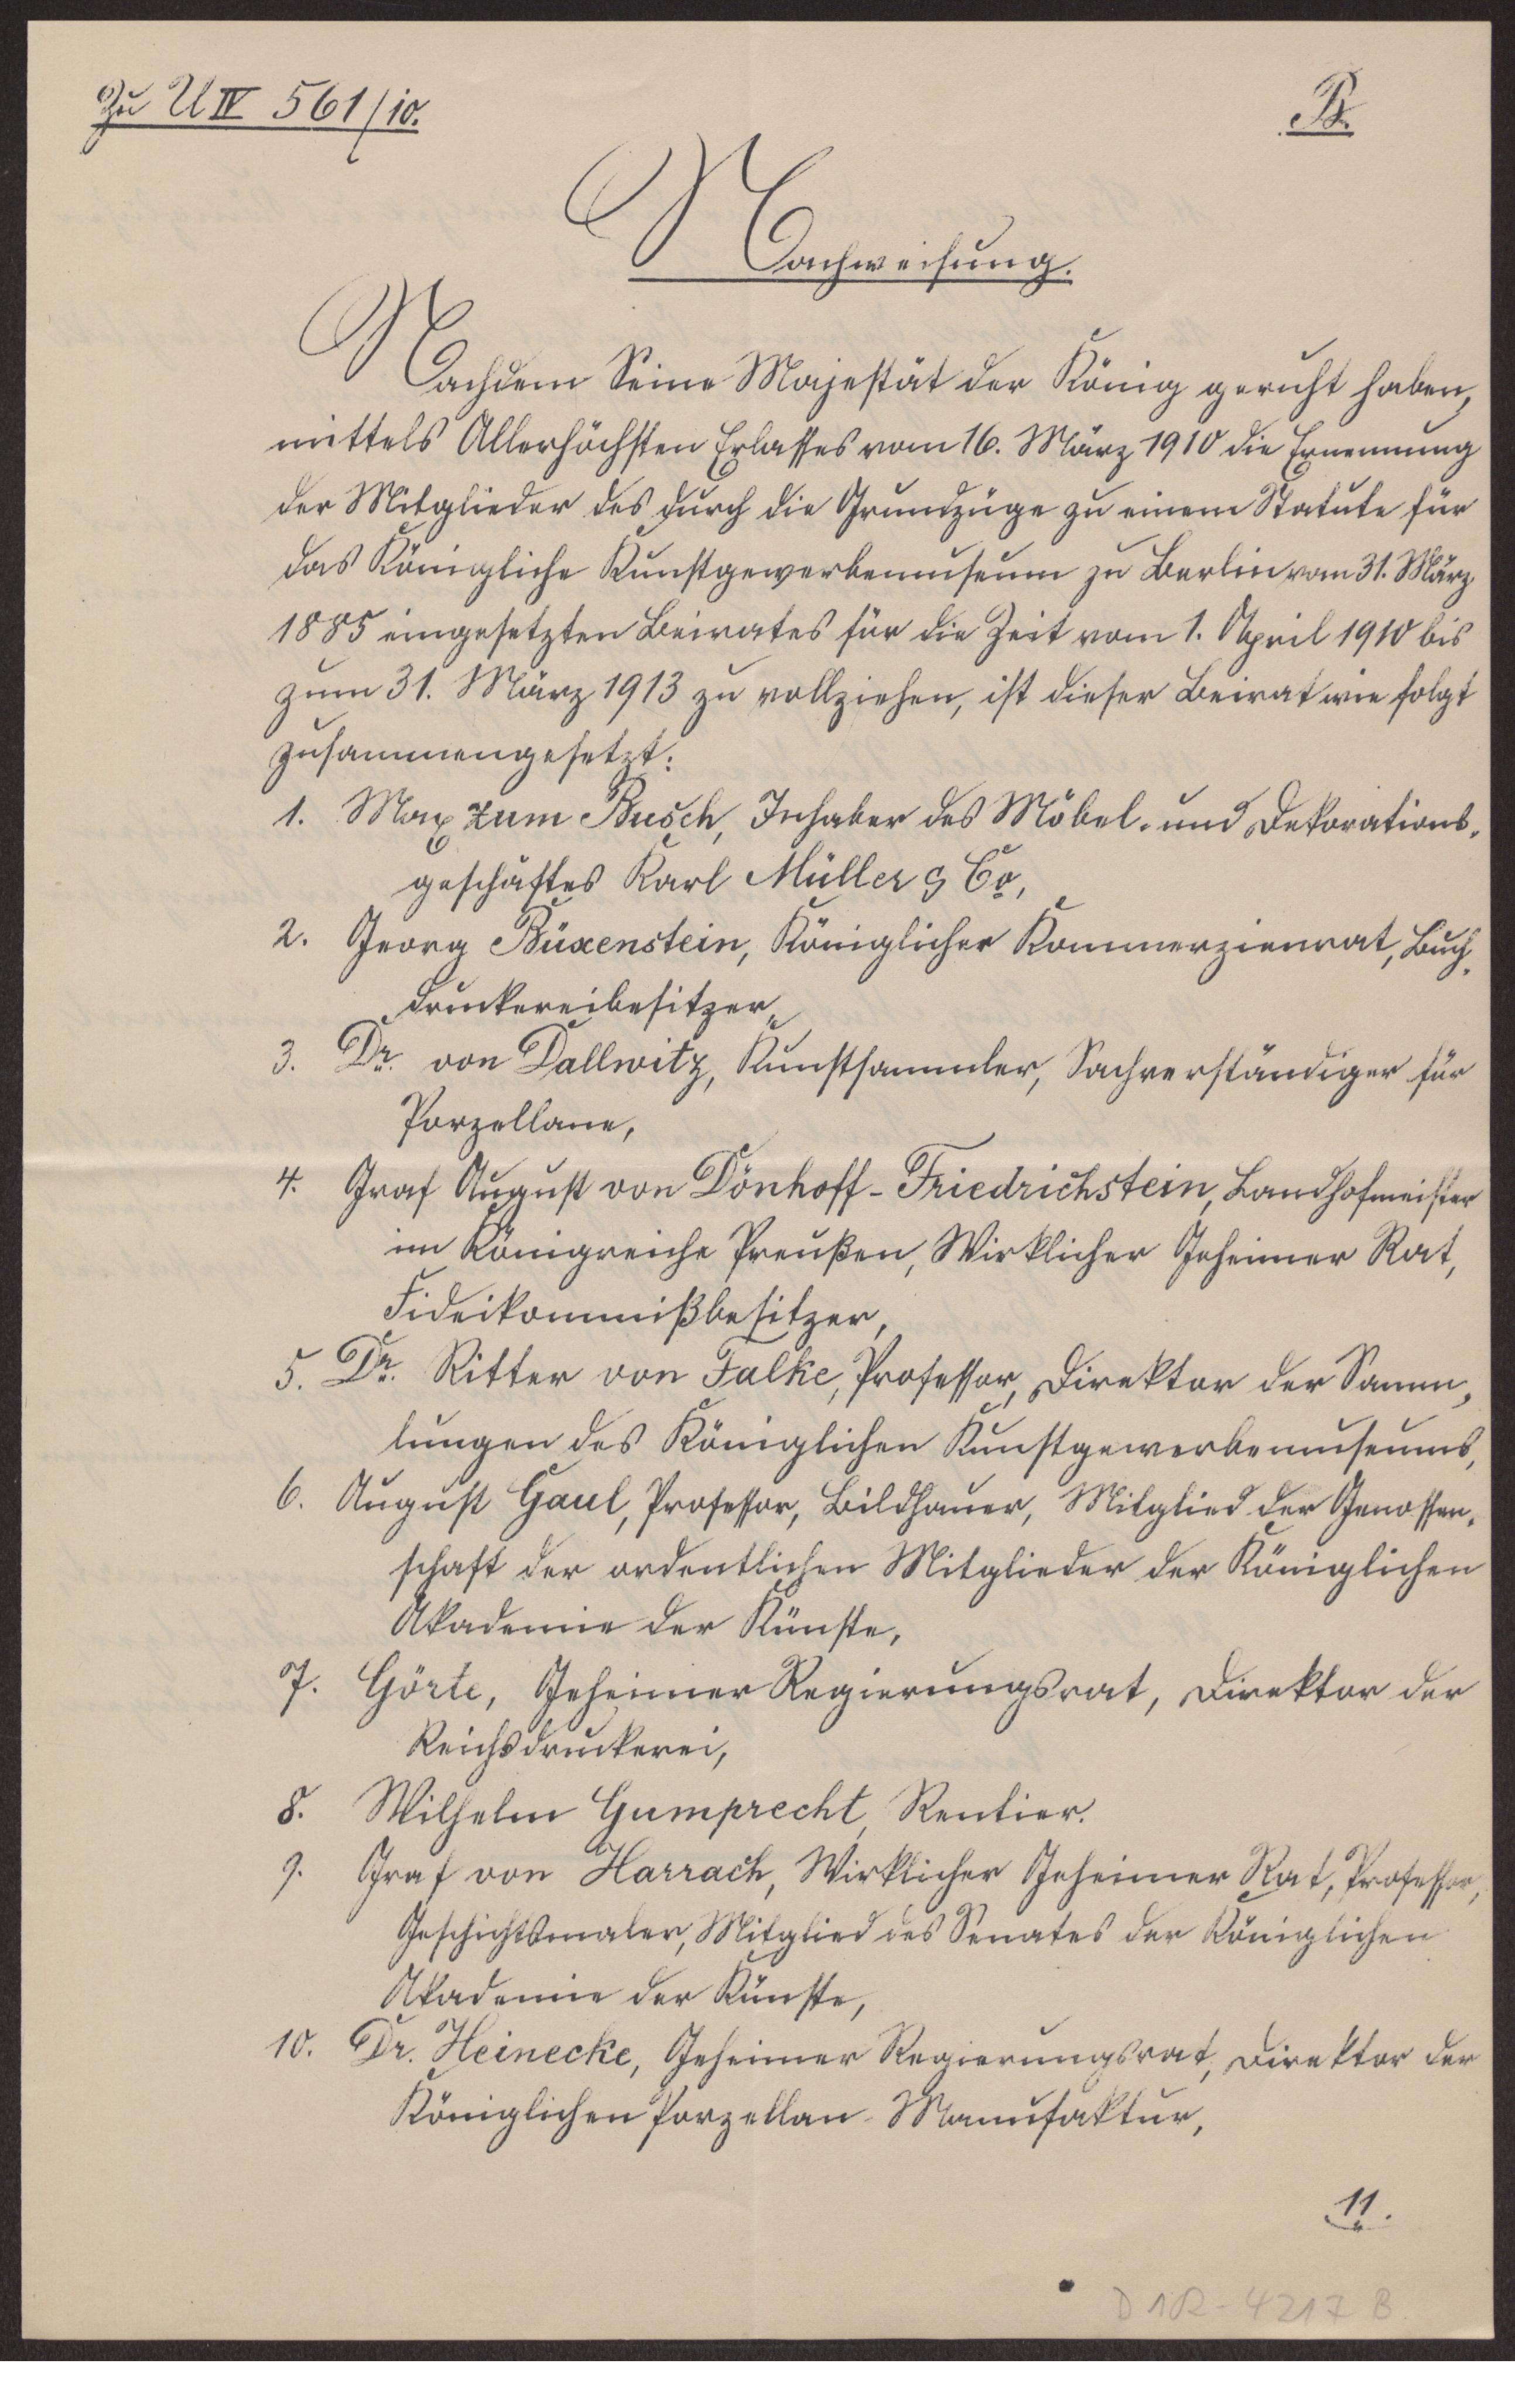 Zu U IV 561/10.
B.
Nachweisung.
Nachdem Seine Majestät der König geruht haben,
mittels Allerhöchsten Erlasses vom 16. März 1910 die Ernennung
der Mitglieder des durch die Grundzüge zu einem Statute für
das Königliche Kunstgewerbemuseum zu Berlin vom 31. März
1885 eingesetzten Beirates für die Zeit vom 1. April 1910 bis
zum 31. März 1913 zu vollziehen, ist dieser Beirat wie folgt
zusammengesetzt:
1. Max zum Busch, Inhaber des Möbel- und Dekorations-
geschäftes Karl Müller & Co,
2. Georg Büxenstein, Königlicher Kommerzienrat, Buch-
druckereibesitzer,
3. Dr. von Dallwitz, Kunstsammler, Sachverständiger für
Porzellane,
4. Graf August von Dönhoff-Friedrichstein, Landhofmeister
im Königreiche Preußen, Wirklicher Geheimer Rat,
Fideikommißbesitzer,
5. Dr. Ritter von Falke, Professor, Direktor der Samm-
lungen des Königlichen Kunstgewerbemuseums,
6. August Gaul, Professor, Bildhauer, Mitglied der Genossen-
schaft der ordentlichen Mitglieder der Königlichen
Akademie der Künste,
7. Görte, Geheimer Regierungsrat, Direktor der
Reichsdruckerei,
8. Wilhelm Gumprecht, Rentier.
9. Graf von Harrach, Wirklicher Geheimer Rat, Professor,
Geschichtsmaler, Mitglied des Senates der Königlichen
Akademie der Künste,
10. Dr. Heinecke, Geheimer Regierungsrat, Direktor der
Königlichen Porzellan-Manufaktur,
11.
D 1R-4217 B